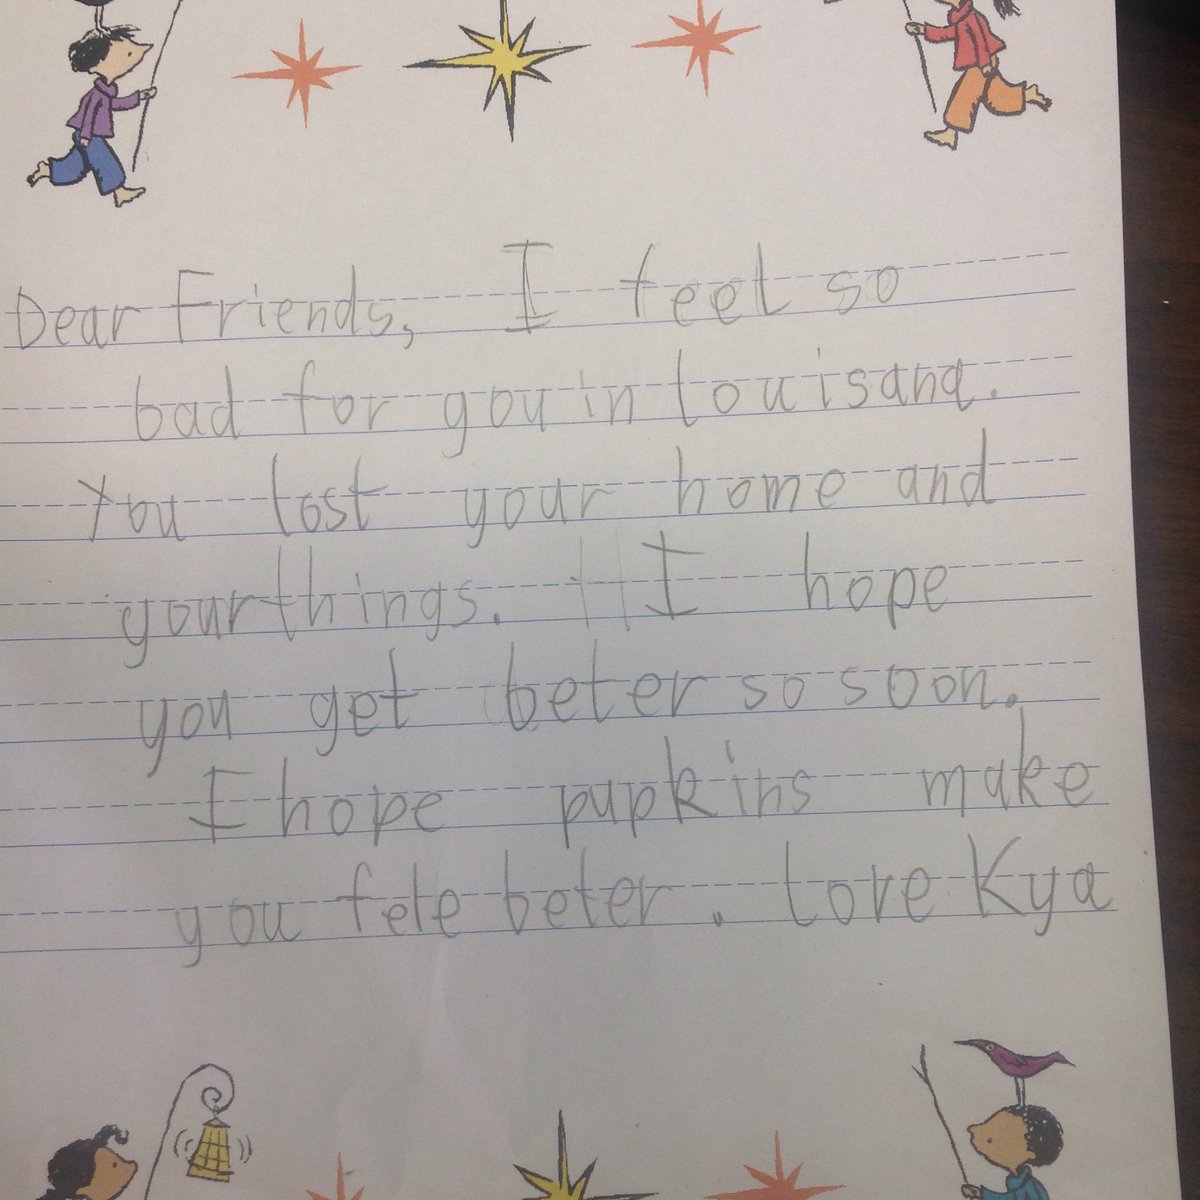 Dear Friends, I feel so
bad for you in Louisana.
You lost your home and
your things. I hope
you get beter so soon.
I hope pupkins make
you fele beter. Love Kya